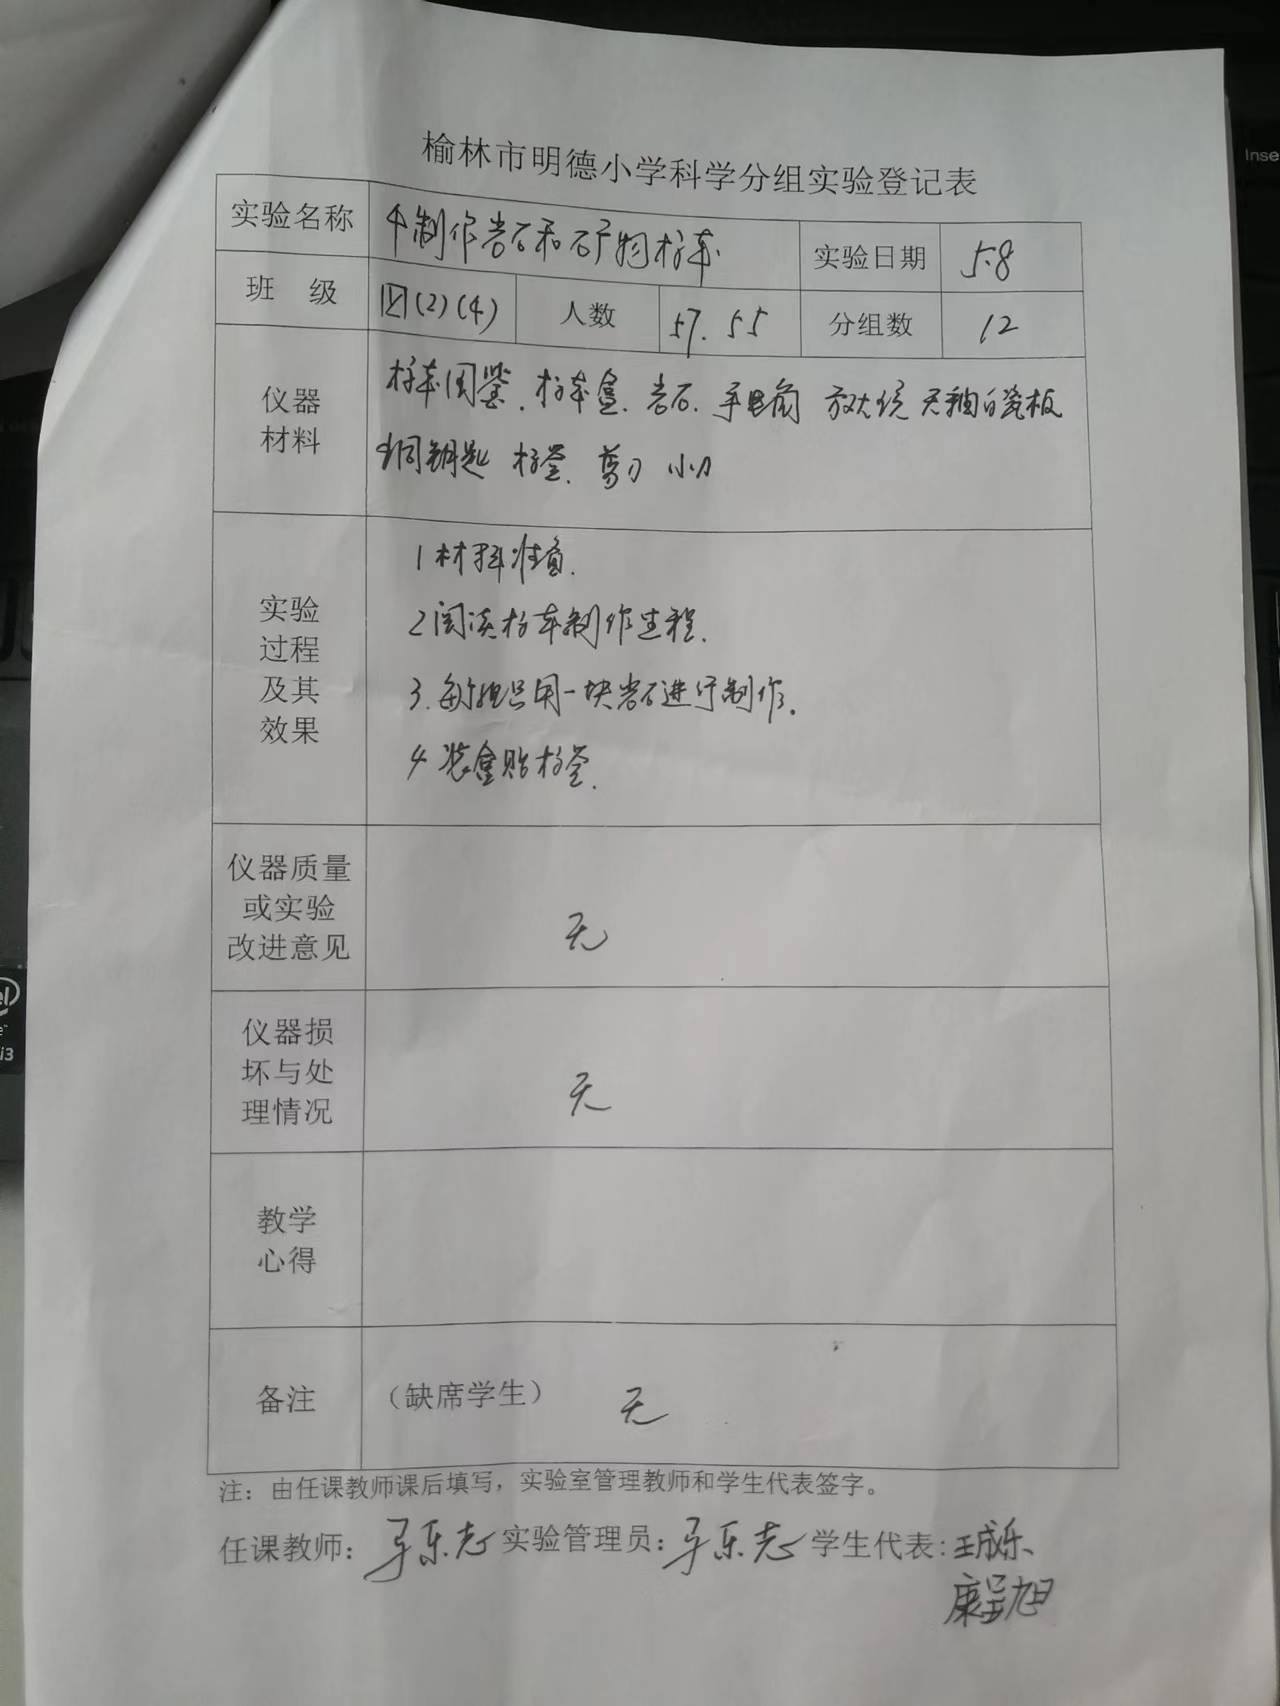 Inse
榆林市明德小学科学分组实验登记表
实验名称 4制作岩石和矿物标本 实验日期 5.8
班 级 四(2)(4) 人数 57. 55 分组数 12
仪器材料 标本图鉴. 标本盒. 岩石. 手电筒 放大镜 无釉白瓷板
铜钥匙 标签. 剪刀 小刀
实验过程及其效果
1 材料准备.
2 阅读标本制作过程.
3. 每组只用一块岩石进行制作.
4 装盒贴标签.
仪器质量或实验改进意见 无
仪器损坏与处理情况 无
教学心得
备注 (缺席学生) 无
注：由任课教师课后填写，实验室管理教师和学生代表签字。
任课教师： 实验管理员： 学生代表: 王成乐
i3